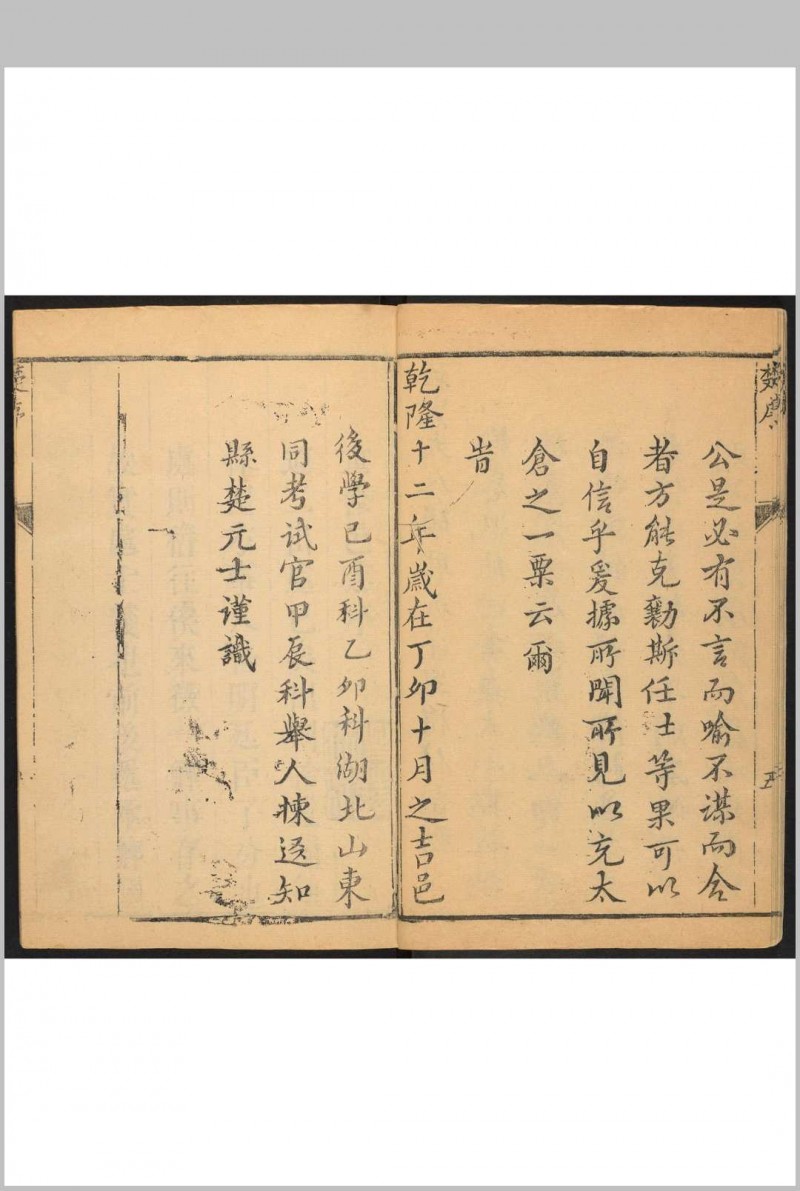 公是必有不言而喻不謀而合
者方能克勷斯任士等果可以
自信乎爰據所聞所見以充太
倉之一粟云爾
旹
乾隆十二年歲在丁卯十月之吉邑
後學己酉科乙卯科湖北山東
同考試官甲辰科舉人揀選知
縣楚元士谨識
五